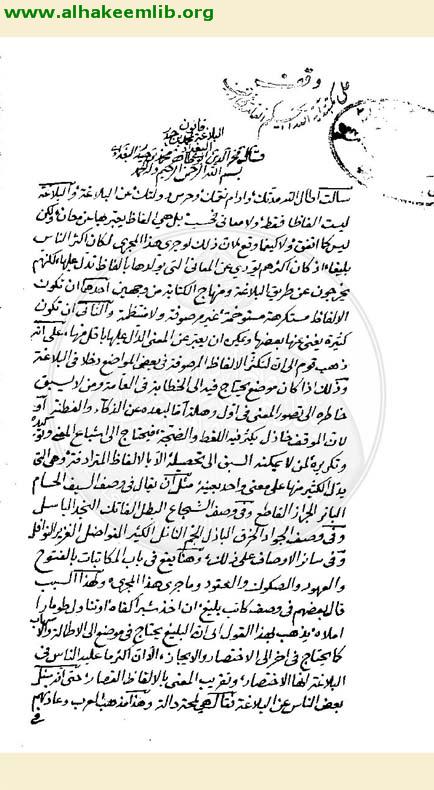 www.alhakeemlib.org
وقف
على مكتبة آية الله الحكيم العامة
قانون
البلاغة
بسم الله الرحمن الرحيم
سالت اطال الله مدتك وادام نعمتك وحرس دولتك عن البلاغة والبلاغة
ليست الفاظا فقط ولا معانى فحسب بل هى الفاظ يعبر بها عن معان ولكن
ليس كما اتفق ولا كيفما وقع لان ذلك لو جرى هذا المجرى لكان اكثر الناس
بلغاء اذ كان اكثرهم يؤدى عن المعانى التى يولدها بالفاظ تدل عليها لكنهم
يخرجون عن طريق البلاغة ومنهاج الكتابة من وجهين احدهما ان تكون
الالفاظ مستكرهة مستوخمة غير مرصوفة ولا منتظمة والثانى ان تكون
كثيرة يغنى عنها بعضها ويمكن ان يعبر عن المعنى الدال عليها باقل منها على انه
ذهب قوم الى ان لتكثر الالفاظ المرصوفة فى بعض المواضع دخلا فى البلاغة
وذلك اذا كان موضع يحتاج فيه الى الخطابة فى العامة ومن لا يسبق
خاطره الى تصور المعنى فى اول وهلة اما لبعده عن الذكاء والفطنة او
لان الموقف حافل يكثر فيه اللغط والضجة فيحتاج الى اشباع المعنى
وتكريره لمن لا يمكنه السبق الى تحصيله الا بالالفاظ المترادفة وهى التى
يدل الكثير منها على معنى واحد بعينه مثل ان يقال فى وصف السيف الحسام
الباتر الجراز القاطع وفى وصف الشجاع البطل الفاتك النجد الباسل
وفى وصف الجواد الخرق الباذل الجم النائل الكثير الفواضل الغزير النوافل
وفى سائر الاوصاف على ذلك وهذا يقع فى باب المكاتبات بالفتوح
والعهود والصكوك والعقود وما جرى هذا المجرى ولهذا السبب
قال بعضهم فى وصف كاتب بليغ ان اخذ شبرا كفاه او تناول طومارا
املاه يذهب بهذا القول الى ان البليغ يحتاج فى موضع الى الاطالة والاسهاب
كما يحتاج فى اخر الى الاختصار والايجاز الا ان اكثر ما عليه الناس فى
البلاغة انها الاختصار وتقريب المعنى بالالفاظ القصار حتى انه سئل
بعض الناس عن البلاغة فقال هى لمحة دالة وهذا مذهب العرب وعادتهم
فى